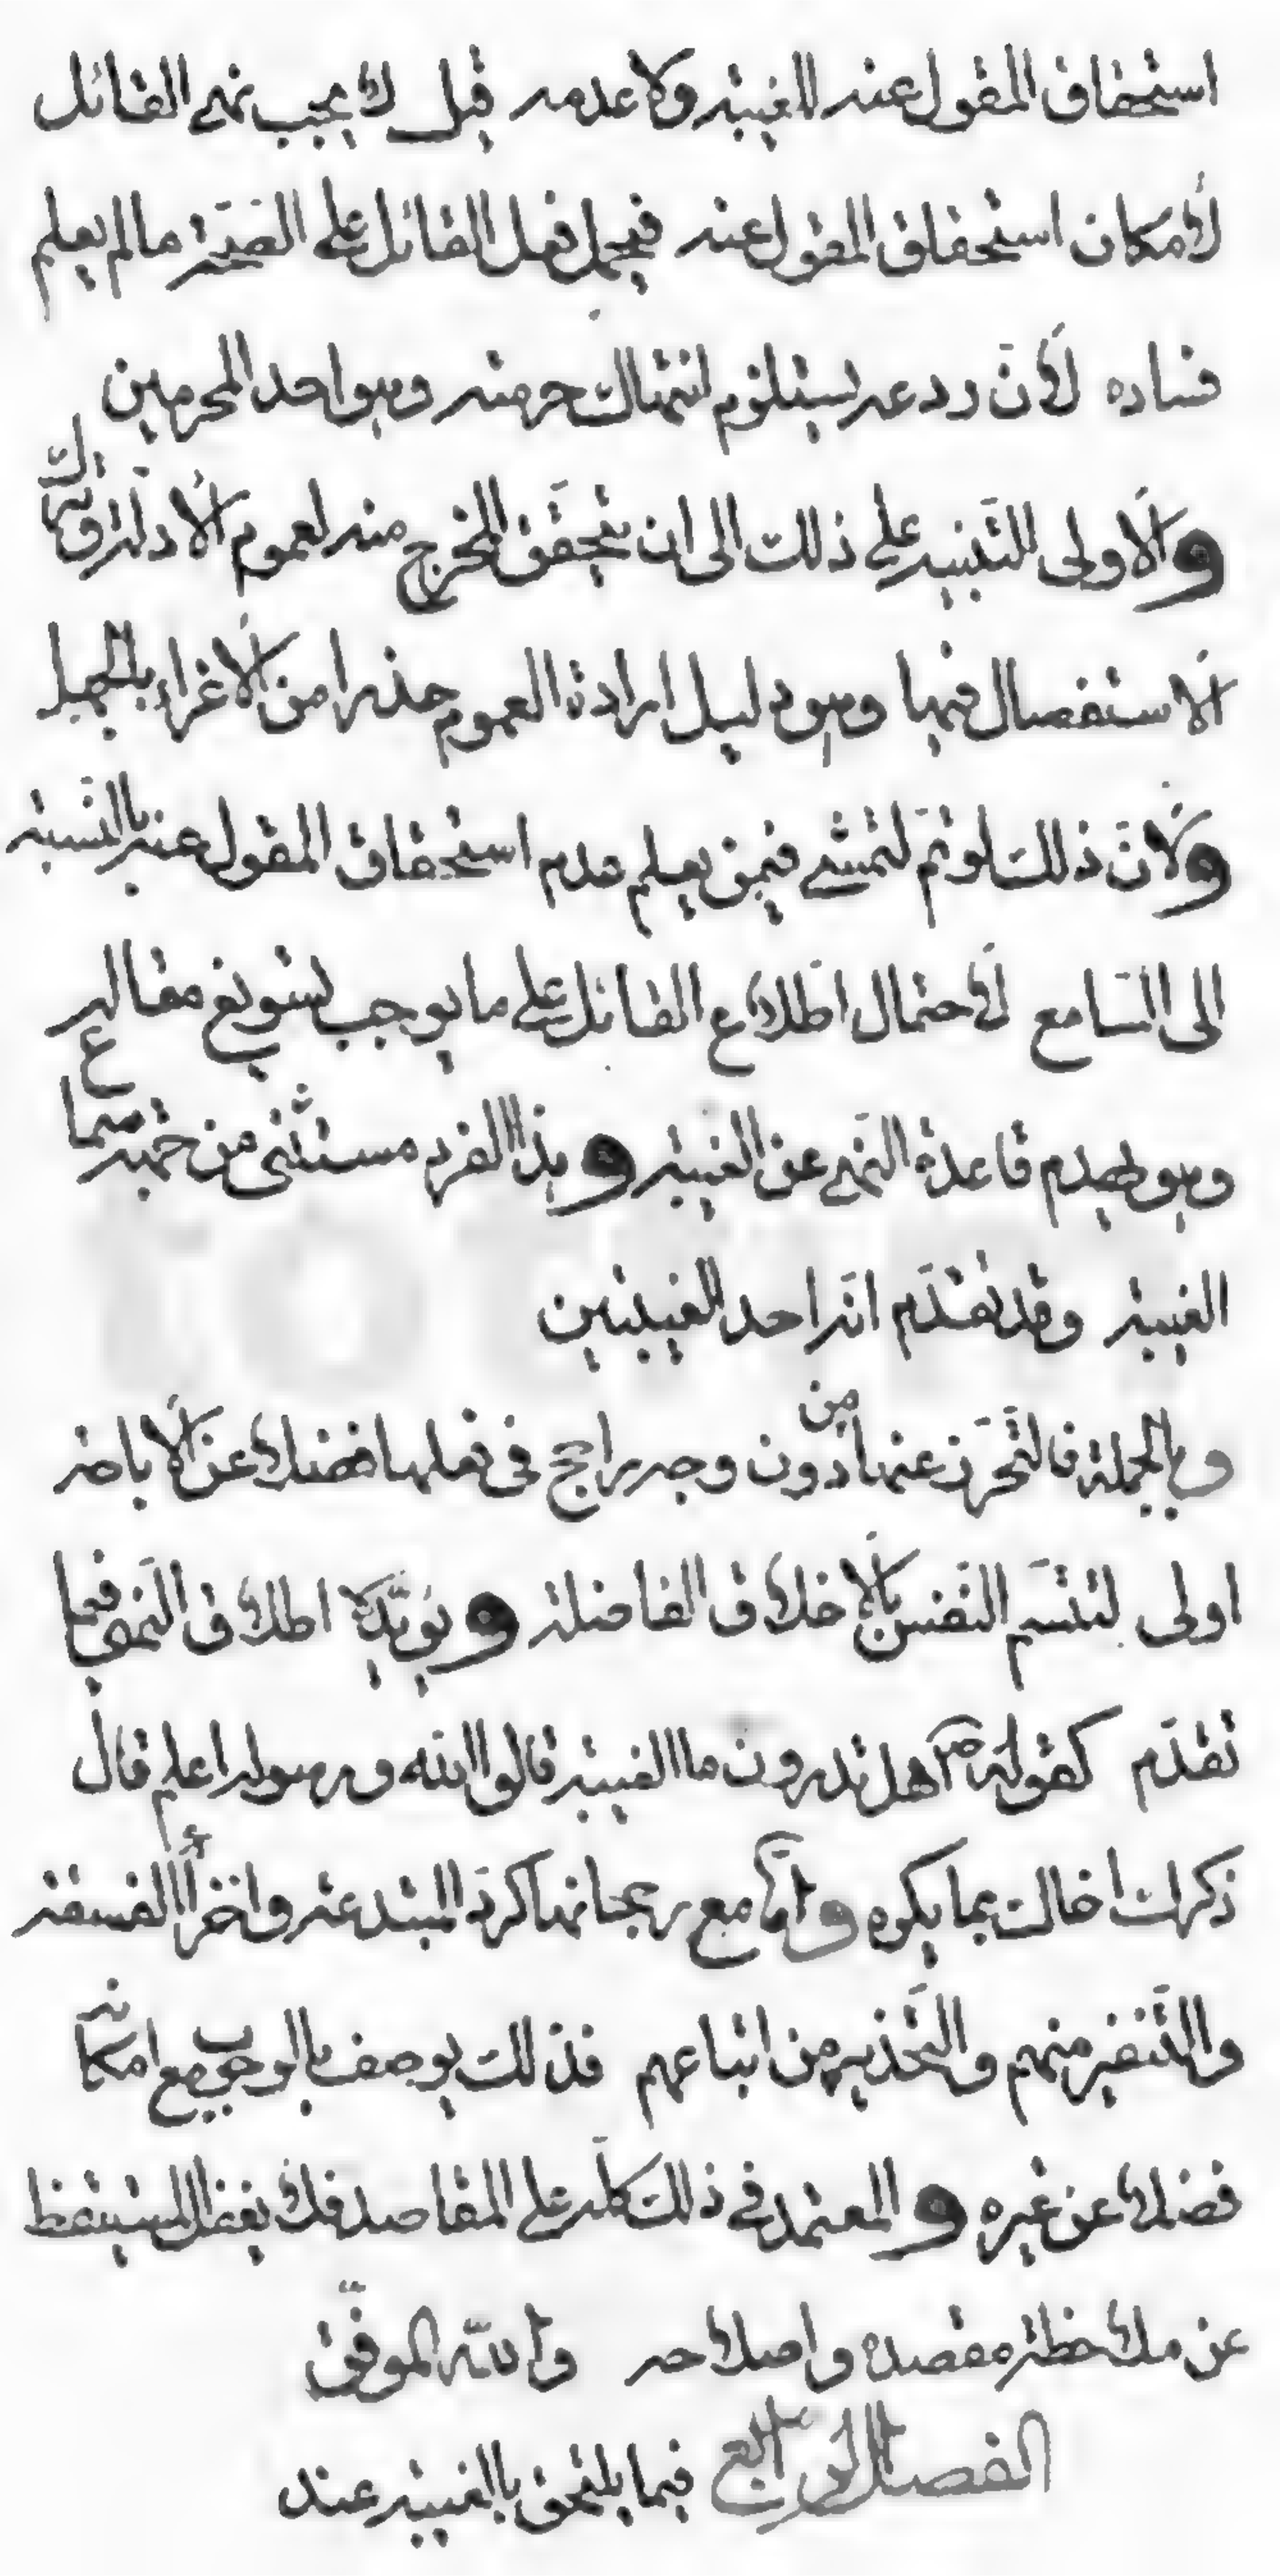 استحقاق المقول عنه للغيبة ولا عدمه قيل لا يجب نهي القائل
لأمكان استحقاق المقول عنه فيحمل فعل القائل على الصّحّة ما لم يعلم
فساده لأنّ ردعه يستلزم انتهاك حرمته وهو احد المحرمين
والأولى التّنبيه على ذلك الى ان يتحقّق المخرج منه لعموم الأدلّة وترك
الأستفصال فيها وهو دليل ارادة العموم حذرا من الأغراء بالجهل
ولأنّ ذلك لو تمّ لتمشّى فيمن يعلم عدم استحقاق المقول عنه بالنّسبة
الى السّامع لأحتمال اطّلاع القائل على ما يوجب تسويغ مقاله
وهو يهدم قاعدة النّهي عن الغيبة وهذا الفرد مستثنى من جهة سماع
الغيبة وقد تقدّم انّه احد الغيبتين
وبالجملة فالتّحرّز عنها من دون وجه راجح في فعلها فضلا عن الأباحة
اولى لتتسم النّفس بالأخلاق الفاضلة ويؤيّده اطلاق النّهي فيما
تقدّم كقوله ص هل تدرون ما الغيبة قالوا الله ورسوله اعلم قال
ذكرك اخاك بما يكره وامّا مع رجحانها كردّ المبتدعة واخزاء الفسقة
والتّنفير منهم والتّحذير من اتباعهم فذلك يوصف بالوجوب مع امكانه
فضلا عن غيره والمعتمد في ذلك كلّه على المقاصد فلا يغفل المستيقظ
عن ملاحظة مقصده واصلاحه والله الموفّق
الفصل الرّابع فيما يلتحق بالغيبة عند